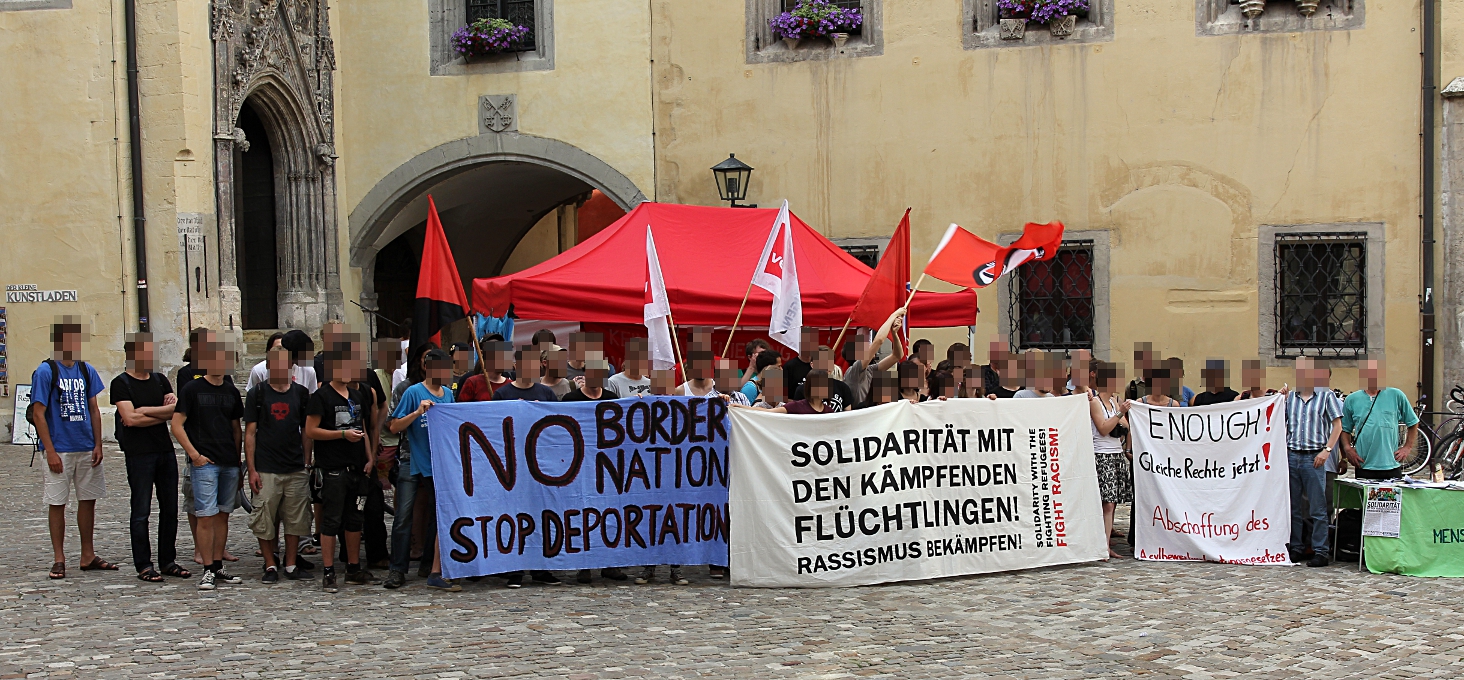 DER KLEINE
KUNSTLADEN
NO BORDER
NATION
STOP DEPORTATION
SOLIDARITÄT MIT
DEN KÄMPFENDEN
FLÜCHTLINGEN!
RASSISMUS BEKÄMPFEN!
SOLIDARITY WITH THE
FIGHTING REFUGEES!
FIGHT RACISM!
ENOUGH!
Gleiche Rechte jetzt!
Abschaffung des
SOLIDARITÄT
MENS